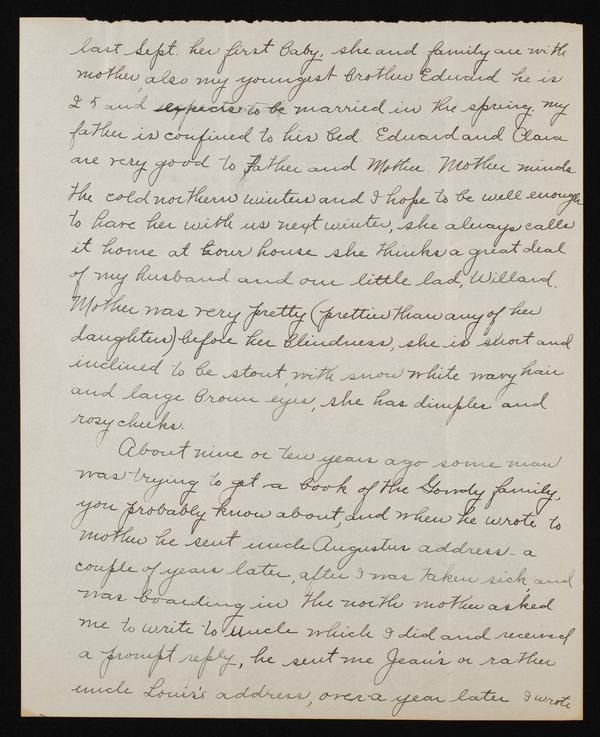 last Sept. her first baby, she and family are with
mother, also my youngest brother Edward he is
25 and expects to be married in the spring. my
father is confined to his bed. Edward and Clara
are very good to Father and Mother. Mother minds
the cold northern winters and I hope to be well enough
to have her with us next winter, she always calls
it home at our house she thinks a great deal
of my husband and our little lad, Willard.
Mother was very pretty (prettier than any of her
daughters) before her blindness, she is short and
inclined to be stout, with snow white wavy hair
and large brown eyes, she has dimples and
rosy cheeks.
About nine or ten years ago some man
was trying to get a book of the Gowdy family,
you probably know about, and when he wrote to
mother he sent uncle Augustus address - a
couple of years later, after I was taken sick, and
was boarding in the north mother asked
me to write to uncle which I did and received
a prompt reply, he sent me Jean's or rather
uncle Louis's address, over a year later I wrote